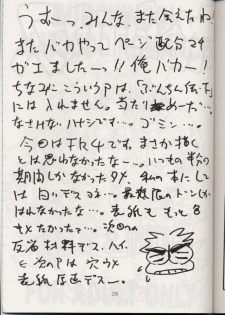 うむーっ、みんな、また会えたね!
またバカやってページ配分マチ
ガエましたーっ!!俺バカー!
ちなみにこういうPは、「ぶんちん伝・下」
には入れません。当たりめーた…。
なさけないハナシですー…。ゴミン…。
今回はFR4です。まさか描く
とは思わなかったなー…。いつもの半分の
期間しかなかったタメ、私の本にして
は白いデスヨネ…。最低限のトーンしか
はれなかったなー…。表紙も もっと
やりたかったァ…。次回への
反省材料デス。ハイ。
この Pは穴ウメ
表紙原画デスー。
28